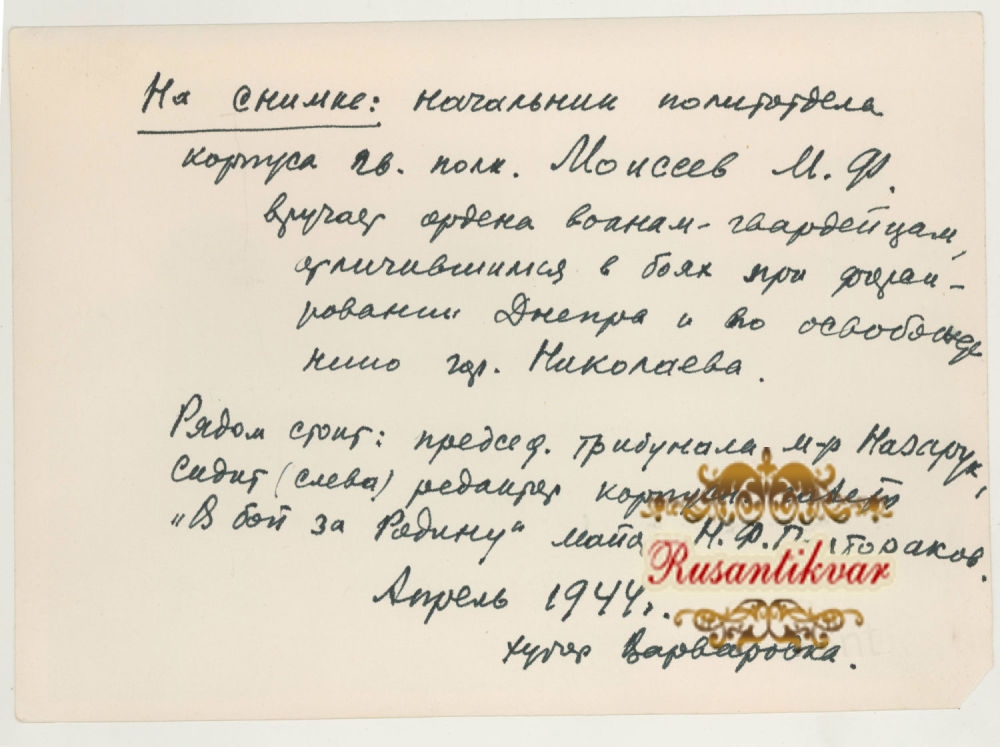 На снимке: начальник политотдела
корпуса гв. полк. Моисеев М. Ф.
вручает ордена воинам-гвардейцам,
отличившимся в боях при форси-
ровании Днепра и по освобожде
нию гор. Николаева.
Рядом стоит: председ. трибунала м-р Назарук,
Сидит (слева) редактор газеты
"В бой за Родину" Н. Ф.
Rusantikvar
Апрель 1944 г.
хутор Варваровка.